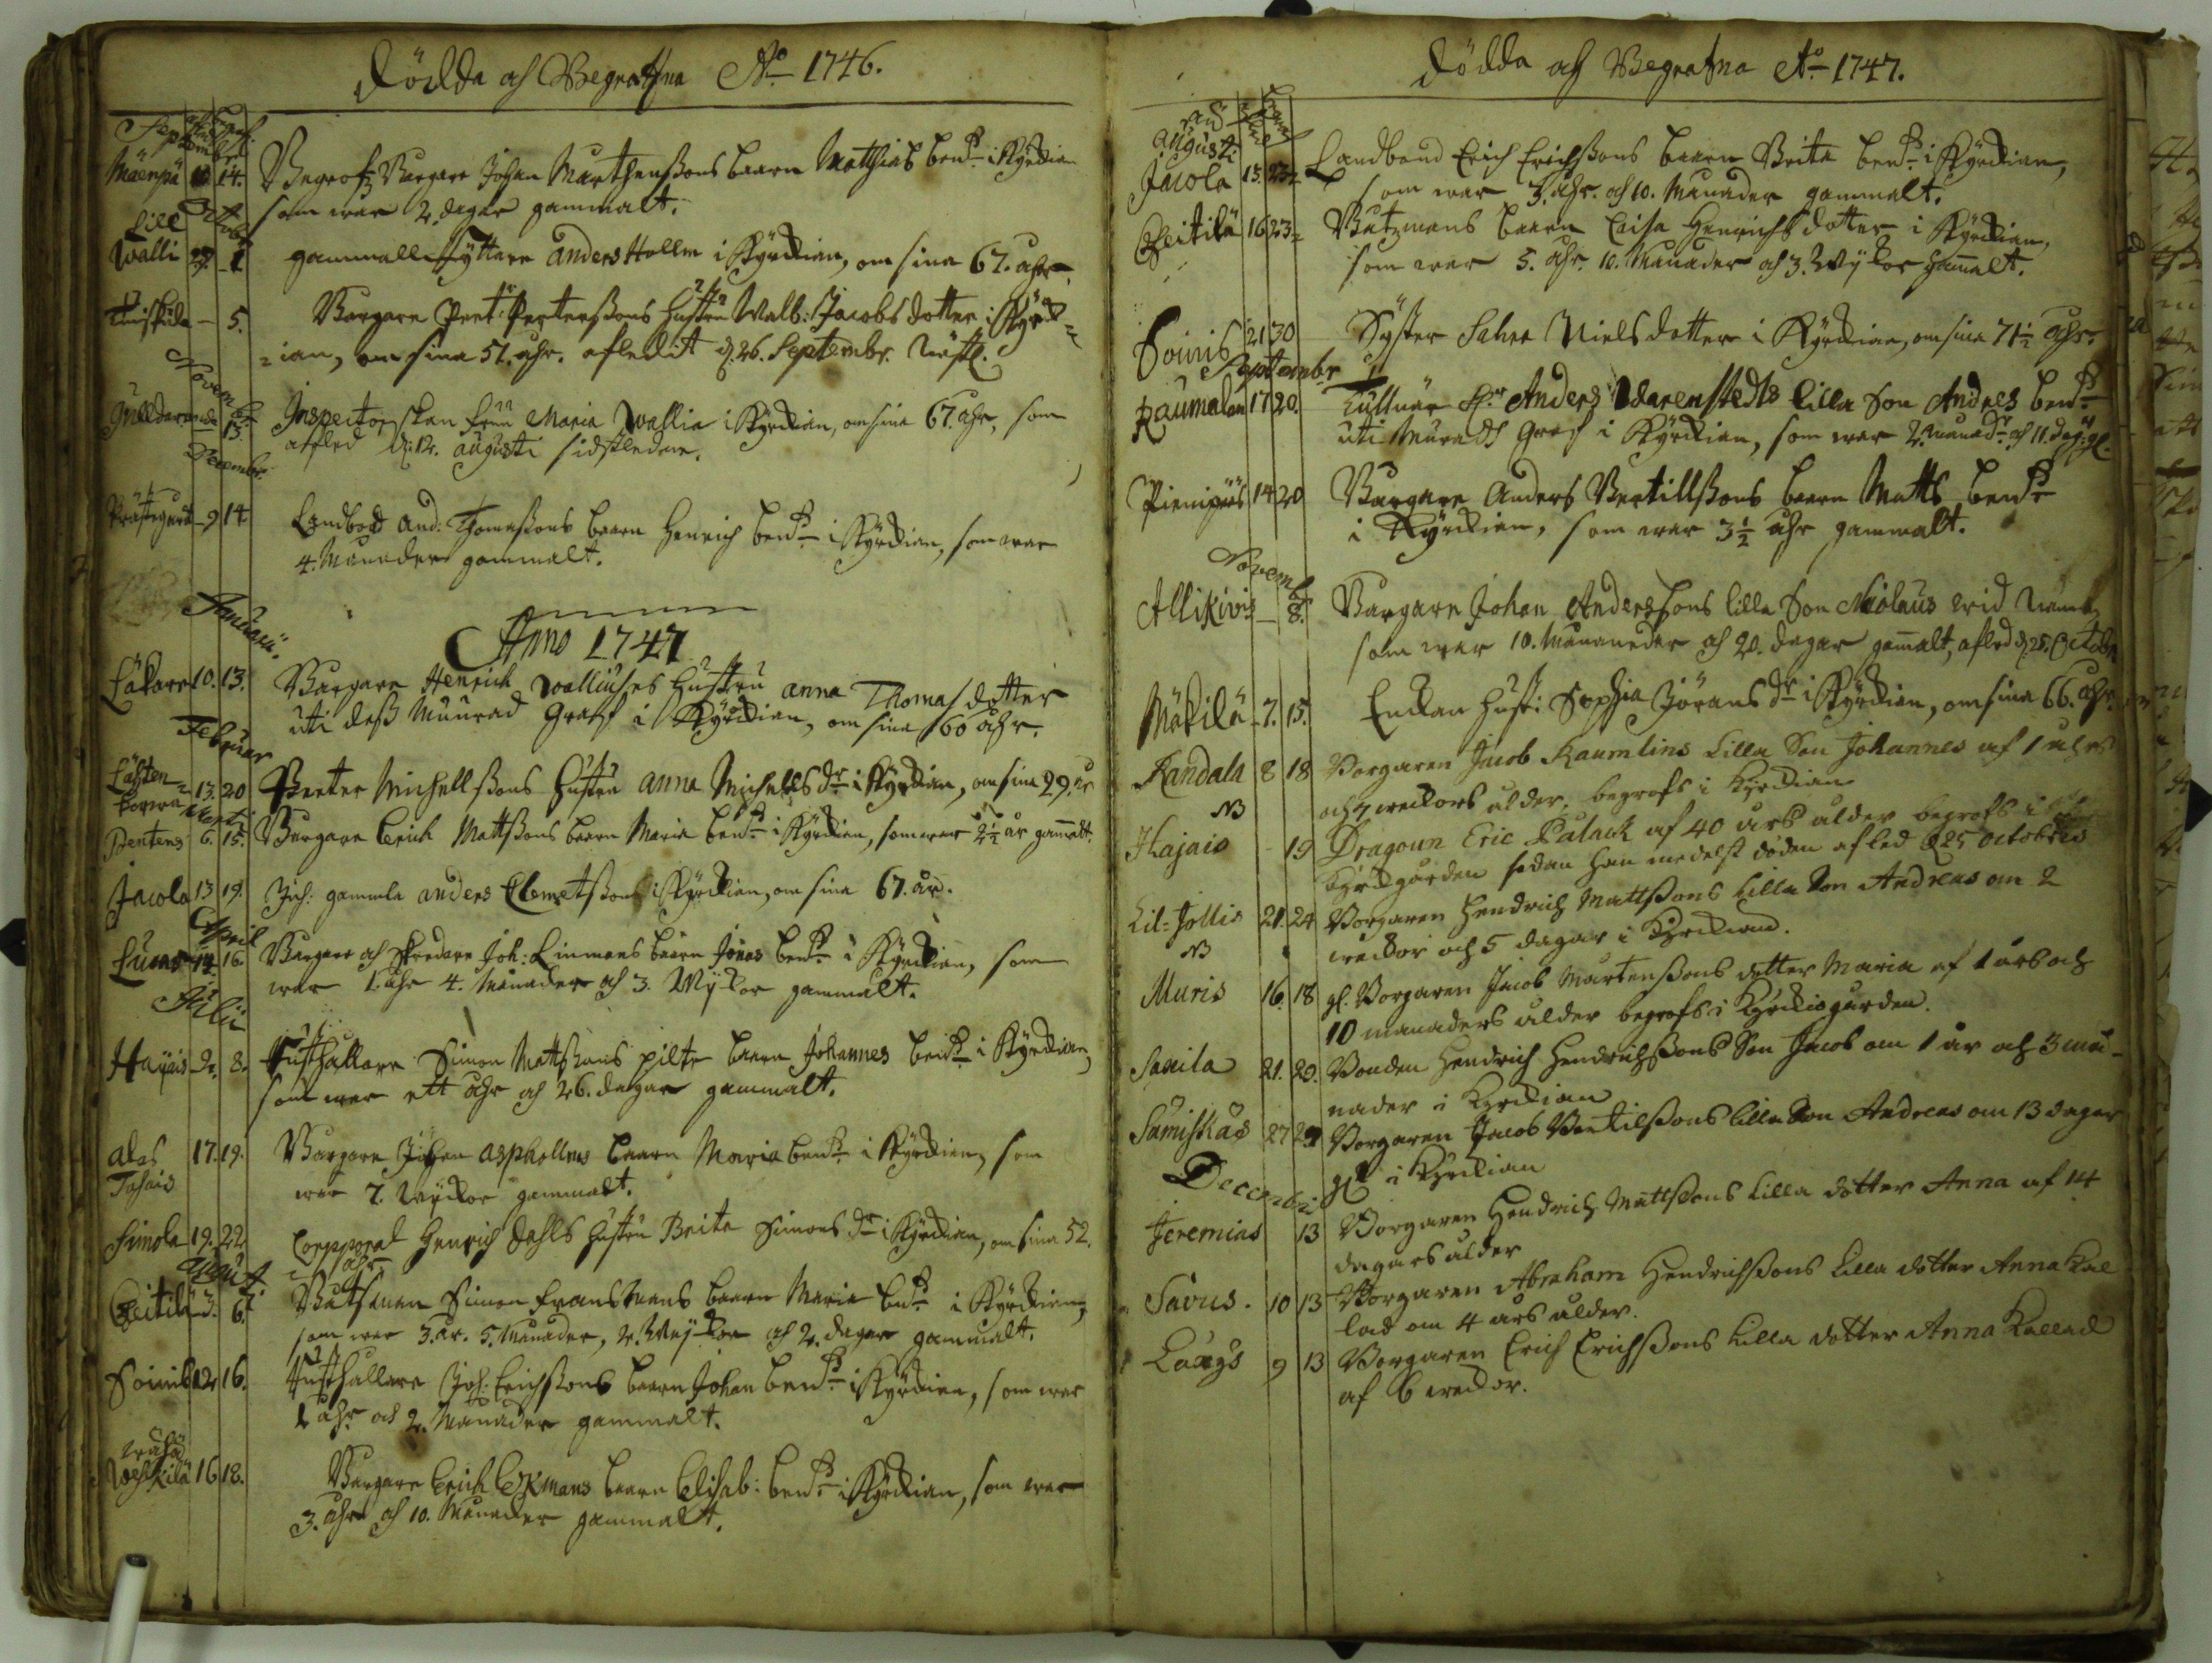 Dödda och Begrafna Ao 1746.
Septembr.
Mäenpä 10 14. Begrofz Borgare Johan Mårthenßons baarn Matthias ben:d i Kyrckian
som war 2. dagar gammalt.
Octob.
Lill
Walli 27. 1 gammalle Anders Hollm i Kyrckian, om sina 67. ahr.
5. Borgare Pert: Perterßons hustru Walb: Jacobs dotter i Kyrck=
=ian, om sina 51. ahr. afledit d. 26. Septembr. näst.
Novembr.
13. Inspectorskan fru Maria Wallia i Kyrckian, om sina 67. ahr, som
affled d. 12. augusti sidstledne.
Decembr.
Prästegård 9 14 Landbod And: Thomaßons baarn Henrich ben:d i Kyrckian, som war
4. Månader gammalt.
Anno 1747
Januarii.
10. 13. Borgare Henrich Walliuses hustru Anna Thomas dotter
uti deß Muurad Graff i Kyrckian, om sina 60 ahr.
Februar
Lähten
korwa 13. 20 Peeter Michellßons hustru Anna Michells dr i Kyrckian, om sina 29. år
Marti
Pentens 6. 15. Borgare Erich Mattßons baarn Maria ben:d i Kyrckian, som war 2½ år gamalt.
Jacola 13 19. Inh: gammla Anders Clemetßons i Kyrckian, om sina 67. år.
April
14. 16. Borgare och Skredare Joh: Linmans baarn Jonas ben:d i Kyrckian, som
war 1. ahr 4. Månader och 3. Wyckor gammalt.
Julii
Hajais 2. 8. Rusthållare Simon Mattßons pilte baarn Johannes ben:d i Kyrckian,
som war ett ahr och 26. dagar gammalt.
Alas
Tahais 17. 19. Borgare Johan Aspholms baarn Maria ben:d i Kyrckian, som
war 7. Wyckor gammalt.
Simola 19. 22. Corpporal Henrich Dahls hustru Brita Simons dr i Kyrckian, om sina 52.
ahr
August.
Cheitilä 3. 6. Båtsman Simon Fransmans baarn Maria ben:d i Kyrckian,
som war 3. år. 5. Månader, 2. Wyckor och 2. dagar gammalt.
Soinis 12 16. Rusthållare Joh: Erichßons baarn Johan ben:d i Kyrckian, som war
1 ahr och 2. Månader gammalt.
Wähä
Wehkilä 16 18. Borgare Erich Ekmans baarn Elisab: ben:d i Kyrckian, som war
3. ahr och 10. Månader gammalt.
Dödda och Begrafna Ao 1747.
Augusti
Jacola 15. 23. Landbond Erich Erichßons baarn Brita ben:d i Kyrckian,
som war 3. ahr. och 10. Månader gammalt.
Cheitilä 16 23. Båtzmans baarn Caisa Henrichs dotter i Kyrckian,
som war 5. ahr. 10. Månader och 3. Wyckor gamalt.
Soinis 21 30 Syster Sahra Niels dotter i Kyrckian, om sina 71½ ahr.
Septembr
Raumalan 17 20. Tullnär Hr Anders Warenstedts lilla Son Andres ben:d
uti Murade Graf i Kyrckian, som war 2. månadr och 11. dag: gl.
Pienipäis 14 20 Borgare Anders Bertillßons baarn Matts ben:d
i Kyrckian, som war 3½ ahr gammalt.
Novemb.
Allikivis 8. Borgare Johan Anderssons lilla Son Nicolaus wid namn,
som war 10. Månander och 20. dagar gamalt, afled d. 25. Octobr
Mäkilä 7. 15. Enckan hust: Sophia Jörans dr i Kyrckian, om sina 66. ahr.
Kandala 8 18 Borgaren Jacob Raumlins Lilla Son Johannes af 1 åhrs
och 7 weckors ålder, begrofs i Kyrckian
NB
Hajais 19 Dragoun Eric Palack af 40 års ålder begrofs i
Kyrckgården sedan han medelst döden afled d 25 Octobris
Lil=Jollis 21. 24 Borgaren Hendrich Mattßons Lilla Son Andreas om 2
weckor och 5 dagar i Kyrckian.
NB
Muris 16. 18 gl. Borgaren Jacob Mårtenßons dotter Maria af 1 års och
10 månaders ålder begrofs i Kyrckiogården.
Sanila 21. 29. Bonden Hendrich Hendrichßons Son Jacob om 1 år och 3 må-
nader i Kyrckian
Samiskas 27 29 Borgaren Jacob Bertilßons lilla Son Andreas om 13 dagar
gl i Kyrckian
Decembr
Jeremias 13 Borgaren Hendrich Mattßons Lilla dotter Anna af 14
dagars ålder
Savus. 10 13 Borgaren Abraham Hendrichßons Lilla dotter Anna kal
lad om 4 års ålder.
Laugs 9 13 Borgaren Erich Erichßons Lilla dotter Anna kallad
af 6 weckor.